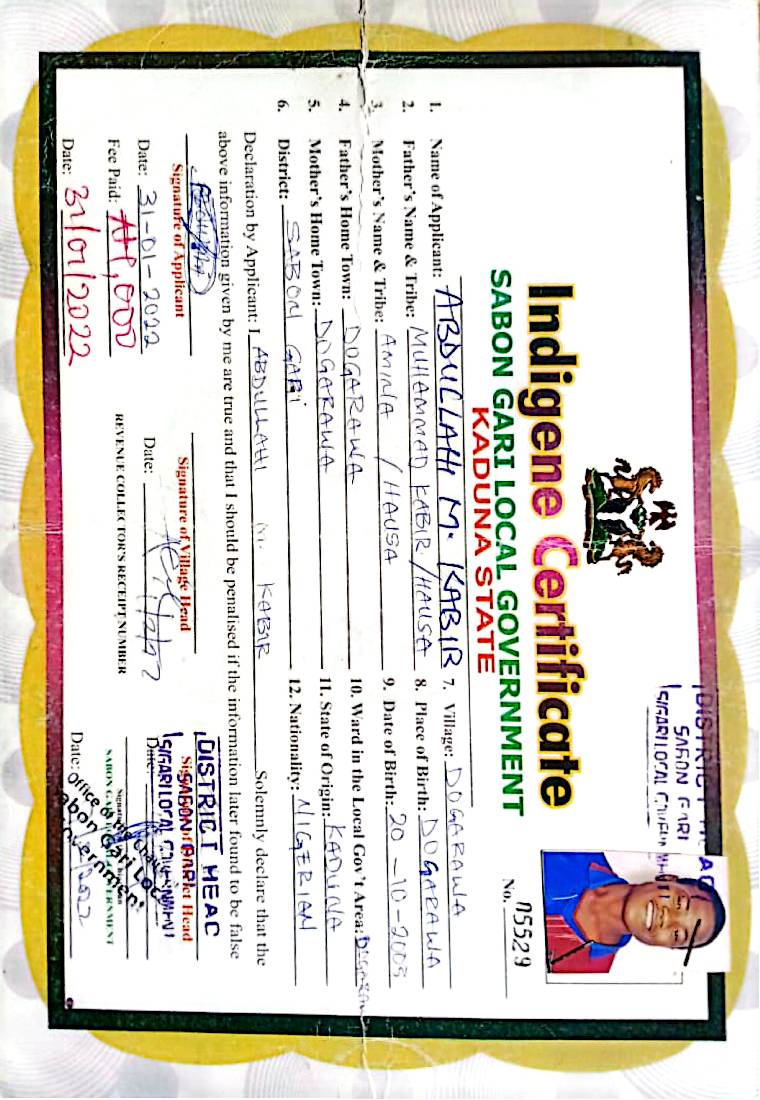 Indigene Certificate
SABON GARI LOCAL GOVERNMENT
KADUNA STATE
No. 05529
DISTRICT
SABON GARI
1. Name of Applicant: ABDULLAHI M. KABIR
2. Father's Name & Tribe: MUHAMMAD KABIR / HAUSA
3. Mother's Name & Tribe: AMINA / HAUSA
4. Father's Home Town: DOGARAWA
5. Mother's Home Town: DOGARAWA
6. District: SABON GARI
7. Village: DOGARAWA
8. Place of Birth: DOGARAWA
9. Date of Birth: 20-10-2003
10. Ward in the Local Gov't Area:
11. State of Origin: KADUNA
12. Nationality: NIGERIAN
Declaration by Applicant: I ABDULLAHI M. KABIR Solemnly declare that the
above information given by me are true and that I should be penalised if the information later found to be false
Signature of Applicant
Date: 31-01-2022
Fee Paid:
Date: 31/01/2022
Signature of Village Head
Date:
REVENUE COLLECTOR'S RECEIPT NUMBER
DISTRICT HEAD
SABON GARI
Date:
Office of the
Sabon Gari Local
Government
Date: